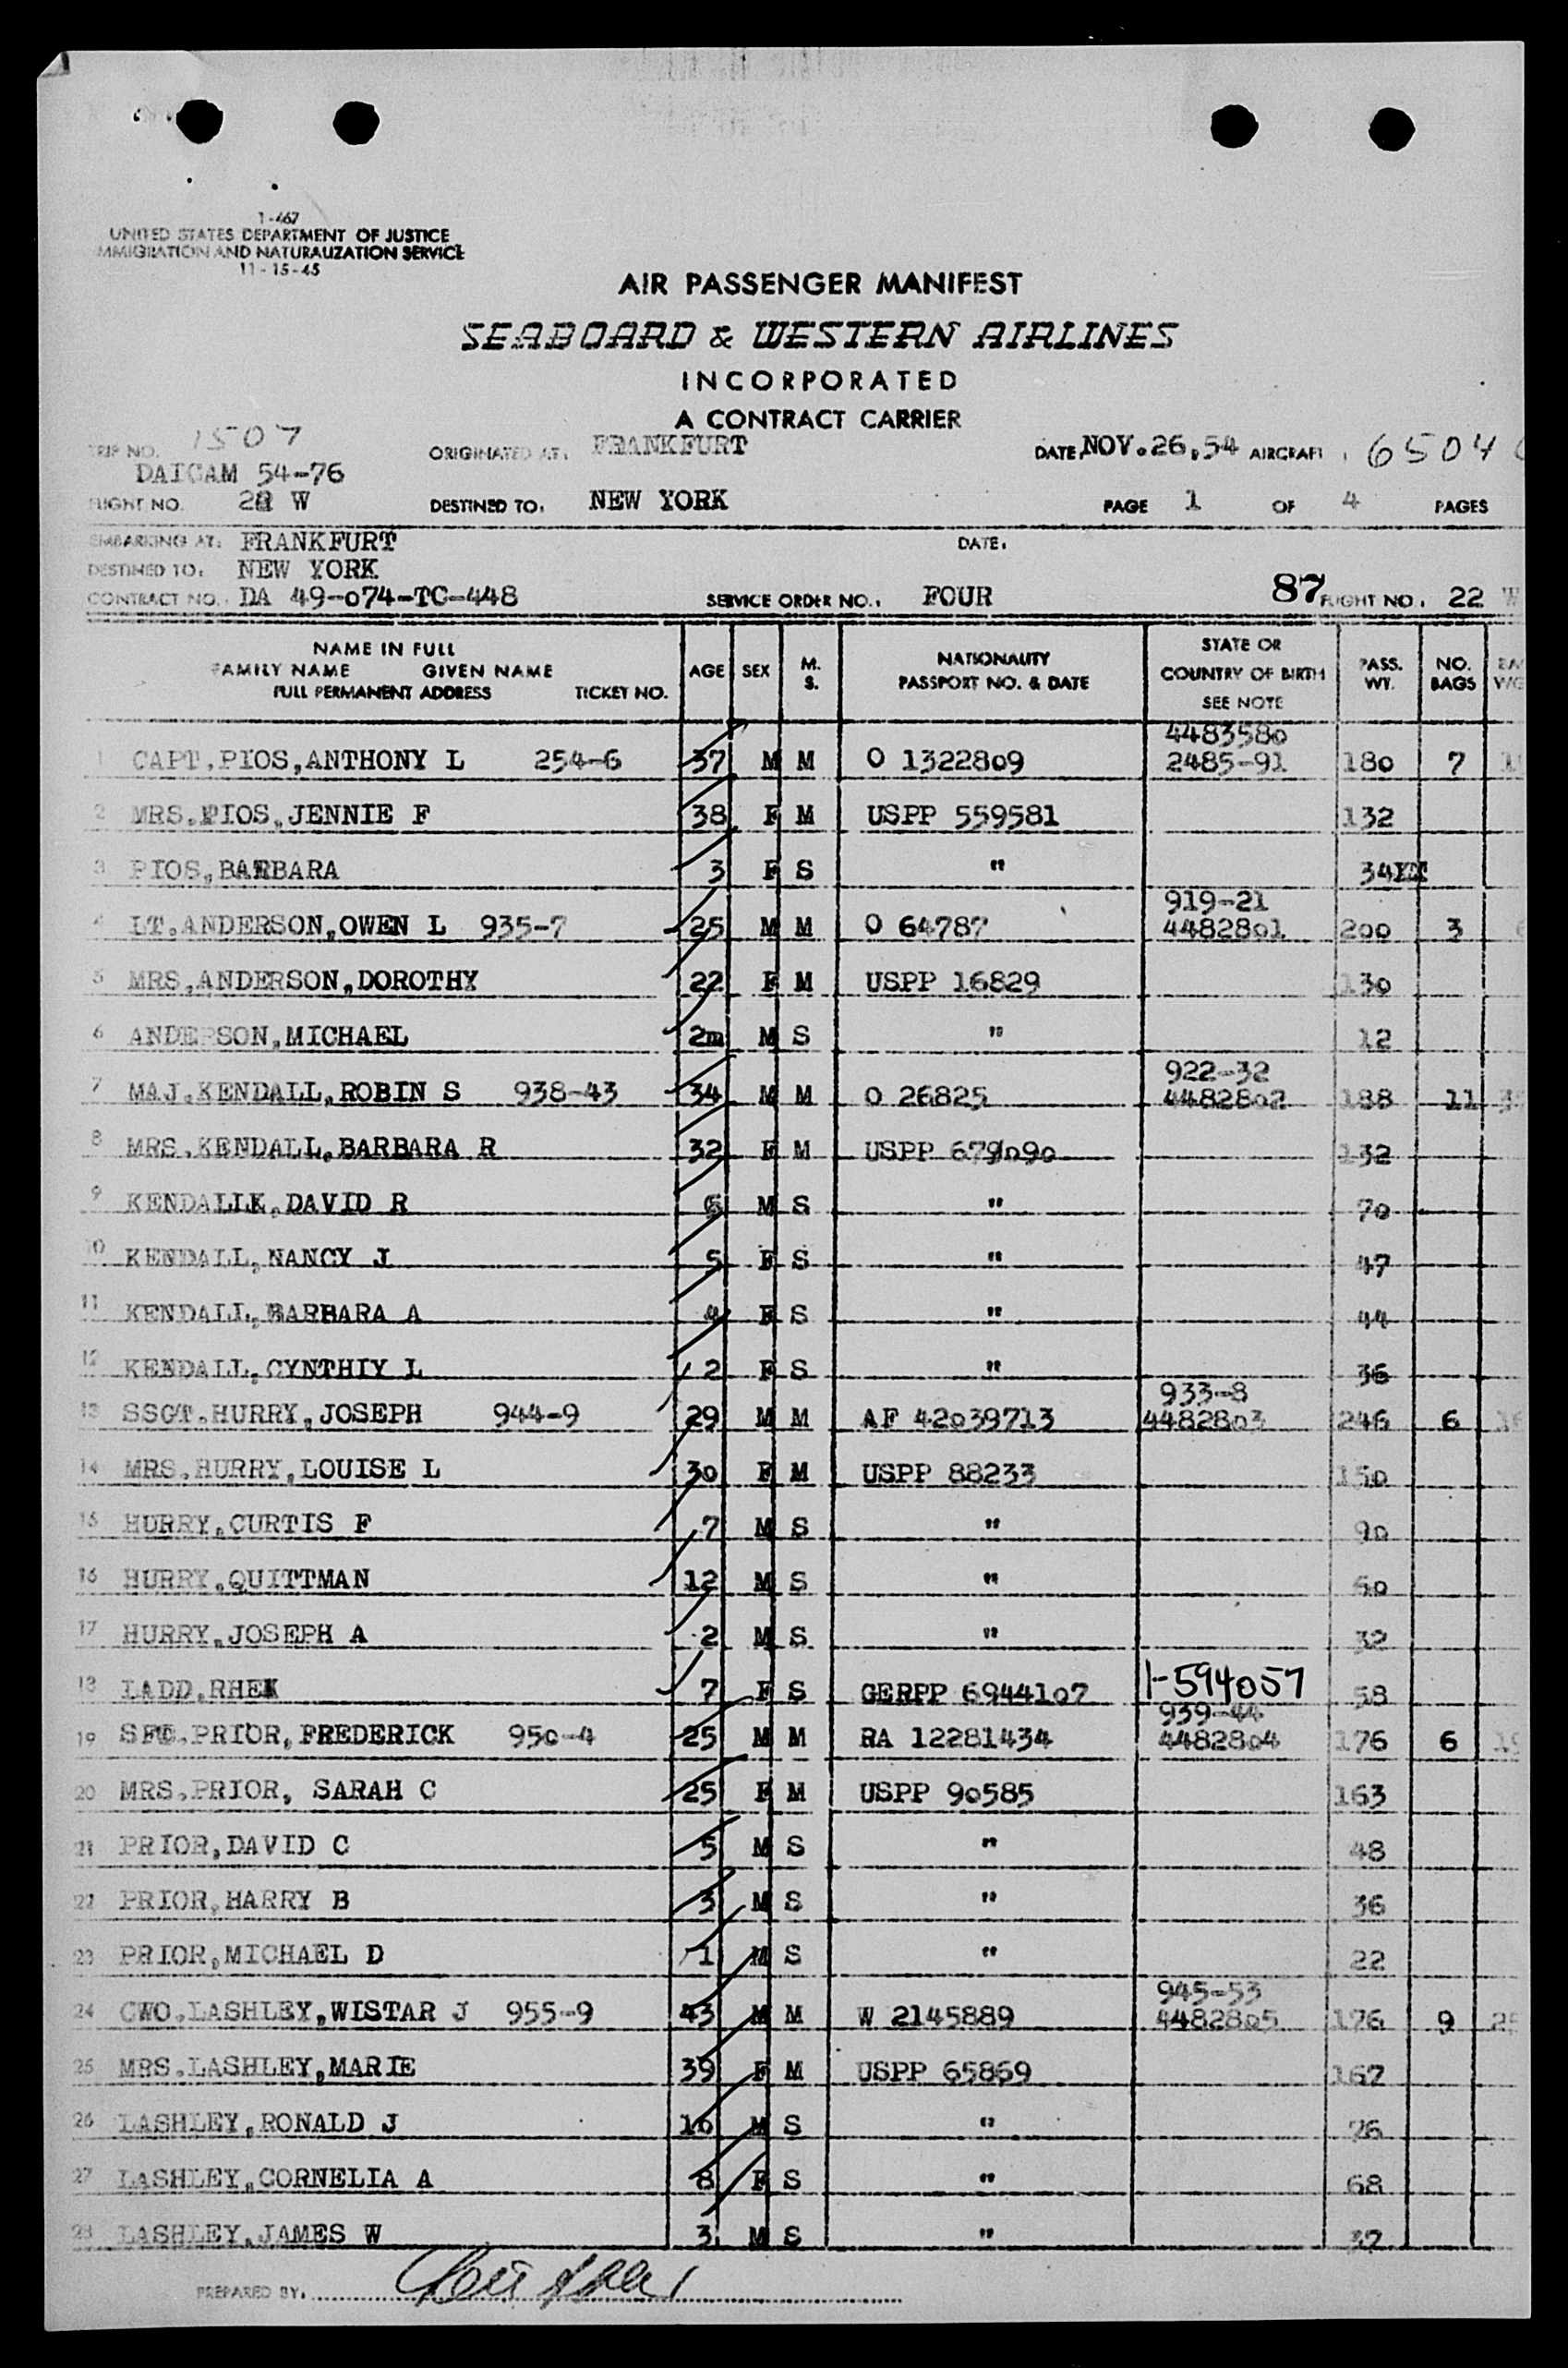 1-467
UNITED STATES DEPARTMENT OF JUSTICE
IMMIGRATION AND NATURALIZATION SERVICE
11-15-45
AIR PASSENGER MANIFEST
SEABOARD & WESTERN AIRLINES
INCORPORATED
A CONTRACT CARRIER
TRIP NO. 1507 ORIGINATED AT: FRANKFURT DATE, NOV.26,54 AIRCRAFT: 6504
DAICAM 54-76
FLIGHT NO. 22 W DESTINED TO: NEW YORK PAGE 1 OF 4 PAGES
EMBARKING AT: FRANKFURT DATE:
DESTINED TO: NEW YORK
CONTRACT NO.: DA 49-074-TC-448 SERVICE ORDER NO.: FOUR 87 FLIGHT NO. 22 W
NAME IN FULL FAMILY NAME GIVEN NAME FULL PERMANENT ADDRESS TICKET NO. AGE SEX M. S. NATIONALITY PASSPORT NO. & DATE STATE OR COUNTRY OF BIRTH SEE NOTE PASS. WT. NO. BAGS
4483580
1 CAPT.PIOS,ANTHONY L 254-6 37 M M O 1322809 2485-91 180 7
2 MRS.PIOS,JENNIE F 38 F M USPP 559581 132
3 PIOS,BARBARA 3 F S " 34
919-21
4 LT.ANDERSON,OWEN L 935-7 25 M M O 64787 4482801 200 3
5 MRS,ANDERSON,DOROTHY 22 F M USPP 16829 130
6 ANDERSON,MICHAEL 2m M S " 12
922-32
7 MAJ.KENDALL,ROBIN S 938-43 34 M M O 26825 4482802 188 11
8 MRS.KENDALL,BARBARA R 32 F M USPP 679090 132
9 KENDALLK,DAVID R 6 M S " 70
10 KENDALL,NANCY J 5 F S " 47
11 KENDALL,BARBARA A 4 F S " 44
12 KENDALL,CYNTHIY L 2 F S " 36
933-8
13 SSGT.HURRY,JOSEPH 944-9 29 M M AF 42039713 4482803 246 6
14 MRS.HURRY,LOUISE L 30 F M USPP 88233 150
15 HURRY,CURTIS F 7 M S " 90
16 HURRY,QUITTMAN 12 M S " 60
17 HURRY,JOSEPH A 2 M S " 32
18 LADD, 7 F S GERPP 6944107 1-594057 58
939-44
19 SFC.PRIOR,FREDERICK 950-4 25 M M RA 12281434 4482804 176 6
20 MRS.PRIOR, SARAH C 25 F M USPP 90585 163
21 PRIOR,DAVID C 5 M S " 48
22 PRIOR,HARRY B 3 M S " 36
23 PRIOR,MICHAEL D 1 M S " 22
945-53
24 CWO.LASHLEY,WISTAR J 955-9 43 M M W 2145889 4482805 176 9
25 MRS.LASHLEY,MARIE 39 F M USPP 65869 167
26 LASHLEY,RONALD J 10 M S " 76
27 LASHLEY,CORNELIA A 8 F S " 68
28 LASHLEY,JAMES W 3 M S " 37
PREPARED BY: